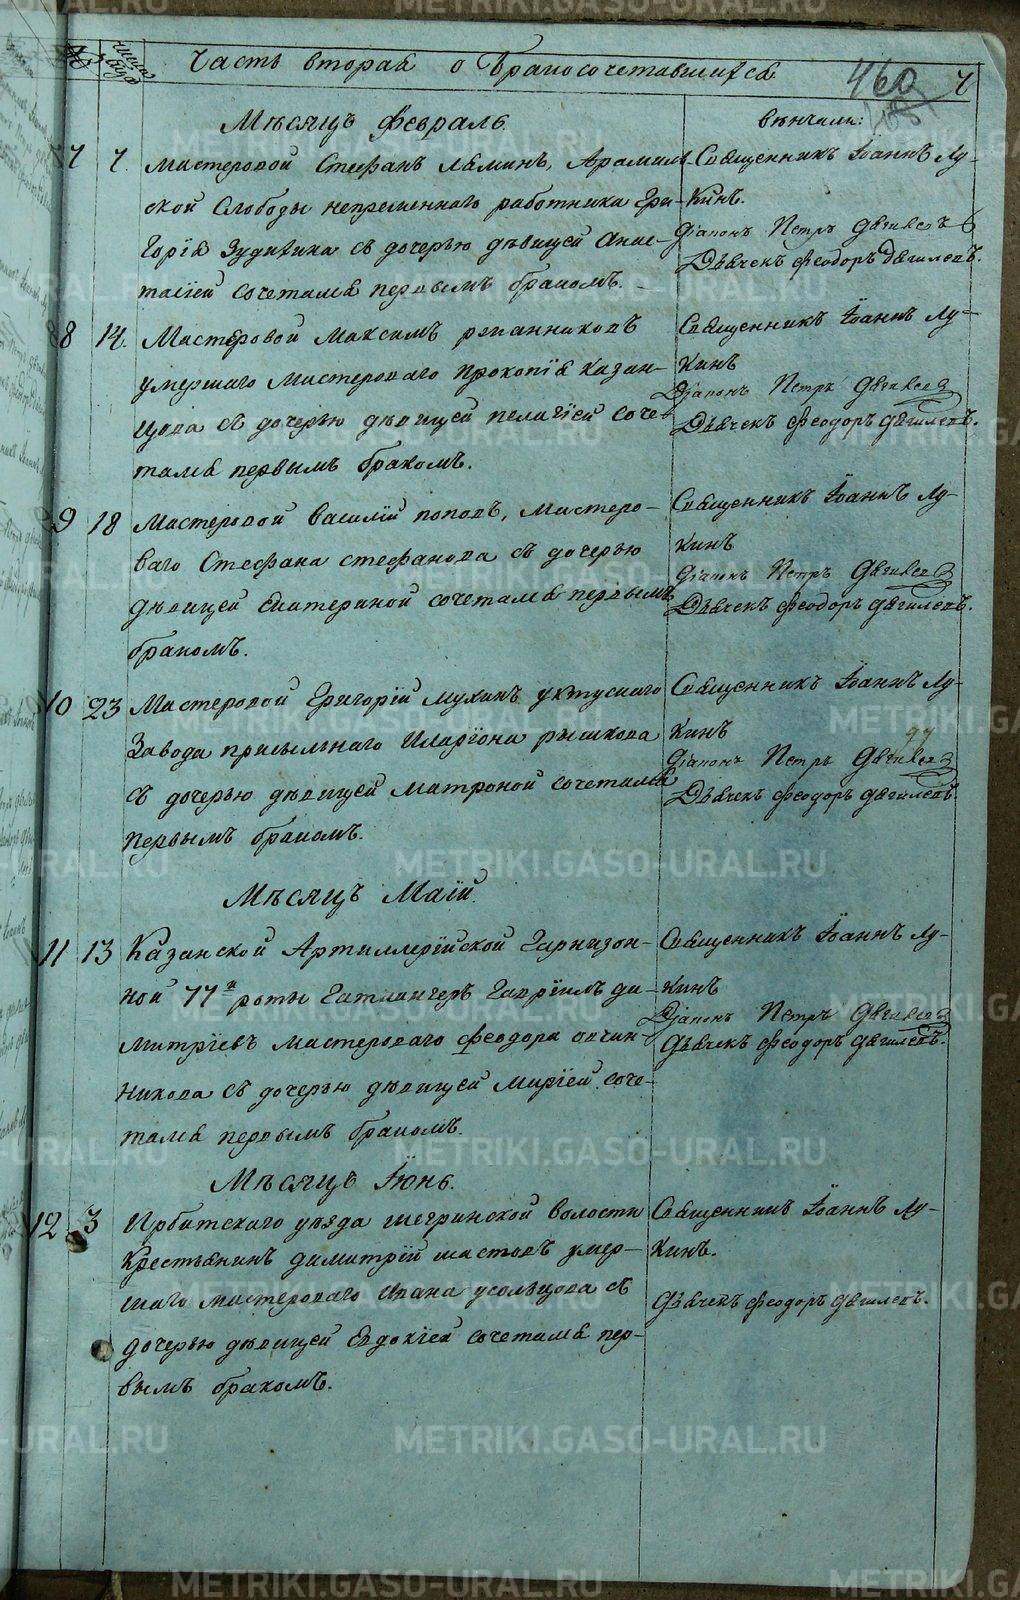 № числа
Часть вторая о бракосочетавшихся
460
7
Месяцъ февраль.
вѣнчали:
7 7. Мастеровой Стефанъ Ляминъ, Арамиль-
ской Слободы непременнаго работника Гри-
горія Зудихина съ дочерью девицей Анис-
таcіей сочетался первымъ бракомъ.
Священникъ Іоаннъ Лу-
кинъ.
Діаконъ Петръ
Дьячекъ Феодоръ Дягилевъ.
8 14. Мастеровой Максимъ
умершаго Мастероваго Прокопія Казан-
цова съ дочерью девицей Пелагіей соче-
тался первымъ бракомъ.
Священникъ Іоаннъ Лу-
кинъ
Діаконъ Петръ
Дьячекъ Феодоръ Дягилевъ.
9 18 Мастеровой Василій Поповъ, Мастеро-
ваго Стефана Стефанова съ дочерью
девицей Екатериной сочетался первымъ
бракомъ.
Священникъ Іоаннъ Лу-
кинъ
Діаконъ Петръ
Дьячекъ Феодоръ Дягилевъ.
10 23 Мастеровой Григорій Мухинъ уктускаго
Завода присыльнаго Иларіона Рышкова
съ дочерью девицей Матроной сочетался
первымъ бракомъ.
Священникъ Іоаннъ Лу-
кинъ
Діаконъ Петръ
Дьячекъ Феодоръ Дягилевъ.
Месяцъ Маій.
11 13 Казанской Артиллерійской Гарнизон-
ной 77й роты Гатлангеръ Гавріилъ Ди-
митріевъ Мастероваго Феодора Овчин-
никова съ дочерью девицей Маріей соче-
тался первымъ бракомъ.
Священникъ Іоаннъ Лу-
кинъ
Діаконъ Петръ
Дьячекъ Феодоръ Дягилевъ.
Месяцъ Іюнь.
12 3 Ирбитскаго уезда шегринской волости
Крестьянинъ Димитрій Шастовъ умер-
шаго мастероваго Ивана Усольцова съ
дочерью девицей Евдокіей сочетался пер-
вымъ бракомъ.
Священникъ Іоаннъ Лу-
кинъ.
Дьячекъ Феодоръ Дягилевъ.
METRIKI.GASO-URAL.RU